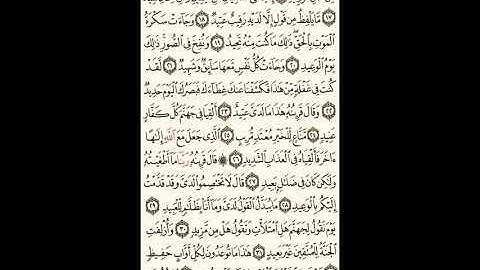 ١٧ مَّا يَلْفِظُ مِن قَوْلٍ إِلَّا لَدَيْهِ رَقِيبٌ عَتِيدٌ ١٨ وَجَآءَتْ سَكْرَةُ
ٱلْمَوْتِ بِٱلْحَقِّ ذَٰلِكَ مَا كُنتَ مِنْهُ تَحِيدُ ١٩ وَنُفِخَ فِى ٱلصُّورِ ذَٰلِكَ
يَوْمُ ٱلْوَعِيدِ ٢٠ وَجَآءَتْ كُلُّ نَفْسٍ مَّعَهَا سَآئِقٌ وَشَهِيدٌ ٢١ لَّقَدْ
كُنتَ فِى غَفْلَةٍ مِّنْ هَٰذَا فَكَشَفْنَا عَنكَ غِطَآءَكَ فَبَصَرُكَ ٱلْيَوْمَ حَدِيدٌ
٢٢ وَقَالَ قَرِينُهُۥ هَٰذَا مَا لَدَىَّ عَتِيدٌ ٢٣ أَلْقِيَا فِى جَهَنَّمَ كُلَّ كَفَّارٍ
عَنِيدٍ ٢٤ مَّنَّاعٍ لِّلْخَيْرِ مُعْتَدٍ مُّرِيبٍ ٢٥ ٱلَّذِى جَعَلَ مَعَ ٱللَّهِ إِلَٰهًا
ءَاخَرَ فَأَلْقِيَاهُ فِى ٱلْعَذَابِ ٱلشَّدِيدِ ٢٦ ۞ قَالَ قَرِينُهُۥ رَبَّنَا مَآ أَطْغَيْتُهُۥ
وَلَٰكِن كَانَ فِى ضَلَٰلٍۭ بَعِيدٍ ٢٧ قَالَ لَا تَخْتَصِمُوا۟ لَدَىَّ وَقَدْ قَدَّمْتُ
إِلَيْكُم بِٱلْوَعِيدِ ٢٨ مَا يُبَدَّلُ ٱلْقَوْلُ لَدَىَّ وَمَآ أَنَا۠ بِظَلَّٰمٍ لِّلْعَبِيدِ ٢٩
يَوْمَ نَقُولُ لِجَهَنَّمَ هَلِ ٱمْتَلَأْتِ وَتَقُولُ هَلْ مِن مَّزِيدٍ ٣٠ وَأُزْلِفَتِ
ٱلْجَنَّةُ لِلْمُتَّقِينَ غَيْرَ بَعِيدٍ ٣١ هَٰذَا مَا تُوعَدُونَ لِكُلِّ أَوَّابٍ حَفِيظٍ